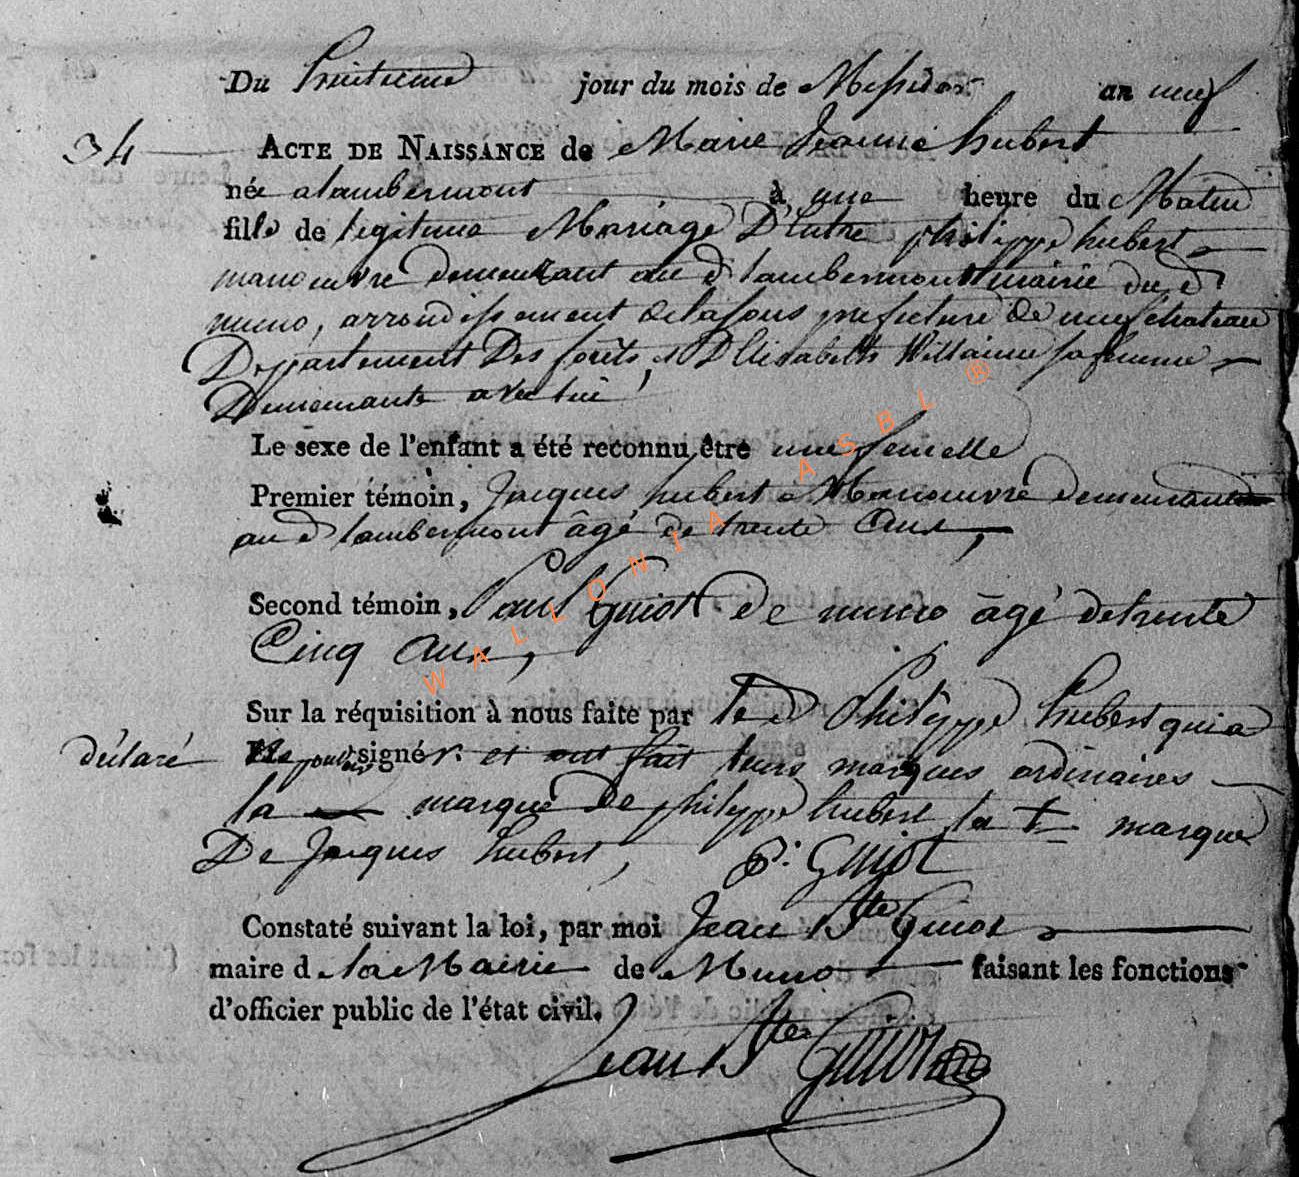 Du huitieme jour du mois de Messidor an neuf
34 Acte de Naissance de Marie Jeanne hubert
née a lambermont à une heure du Matin
fille de legitime Mariage D'Entre philippe hubert
manoeuvre demeurant au d lambermont mairie du d
muno, arrondissement de la sous prefecture de neufchateau
Departement Des forêts, et D'Elisabeth Willaime sa femme
Demeurante avec lui
Le sexe de l'enfant a été reconnu être une femelle
Premier témoin, Jacques hubert Manoeuvre demeurant
au d lambermont âgé de trente ans,
Second témoin, Paul Guiot De muno âgé de trente
Cinq ans,
Sur la réquisition à nous faite par le d Philippe hubert qui a
déclaré ne pouvoir signer. et ont fait leurs marques ordinaires
la marque De philippe hubert la + marque
De Jacques hubert, P. Guiot
Constaté suivant la loi, par moi Jean Bte Guiot
maire d la Mairie de Muno faisant les fonctions
d'officier public de l'état civil.
Jean Bte Guiot
WALLONIA ASBL ®